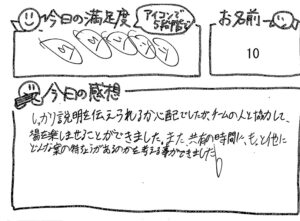 今日の満足度
アイコンで
5段階で
お名前
10
今日の感想
しっかり説明を伝えられるか心配でしたが、チームの人と協力して、
場を楽しませることができました。また、共有の時間に、もっと他に
どんな案の特ちょうがあるのかを考える事ができました